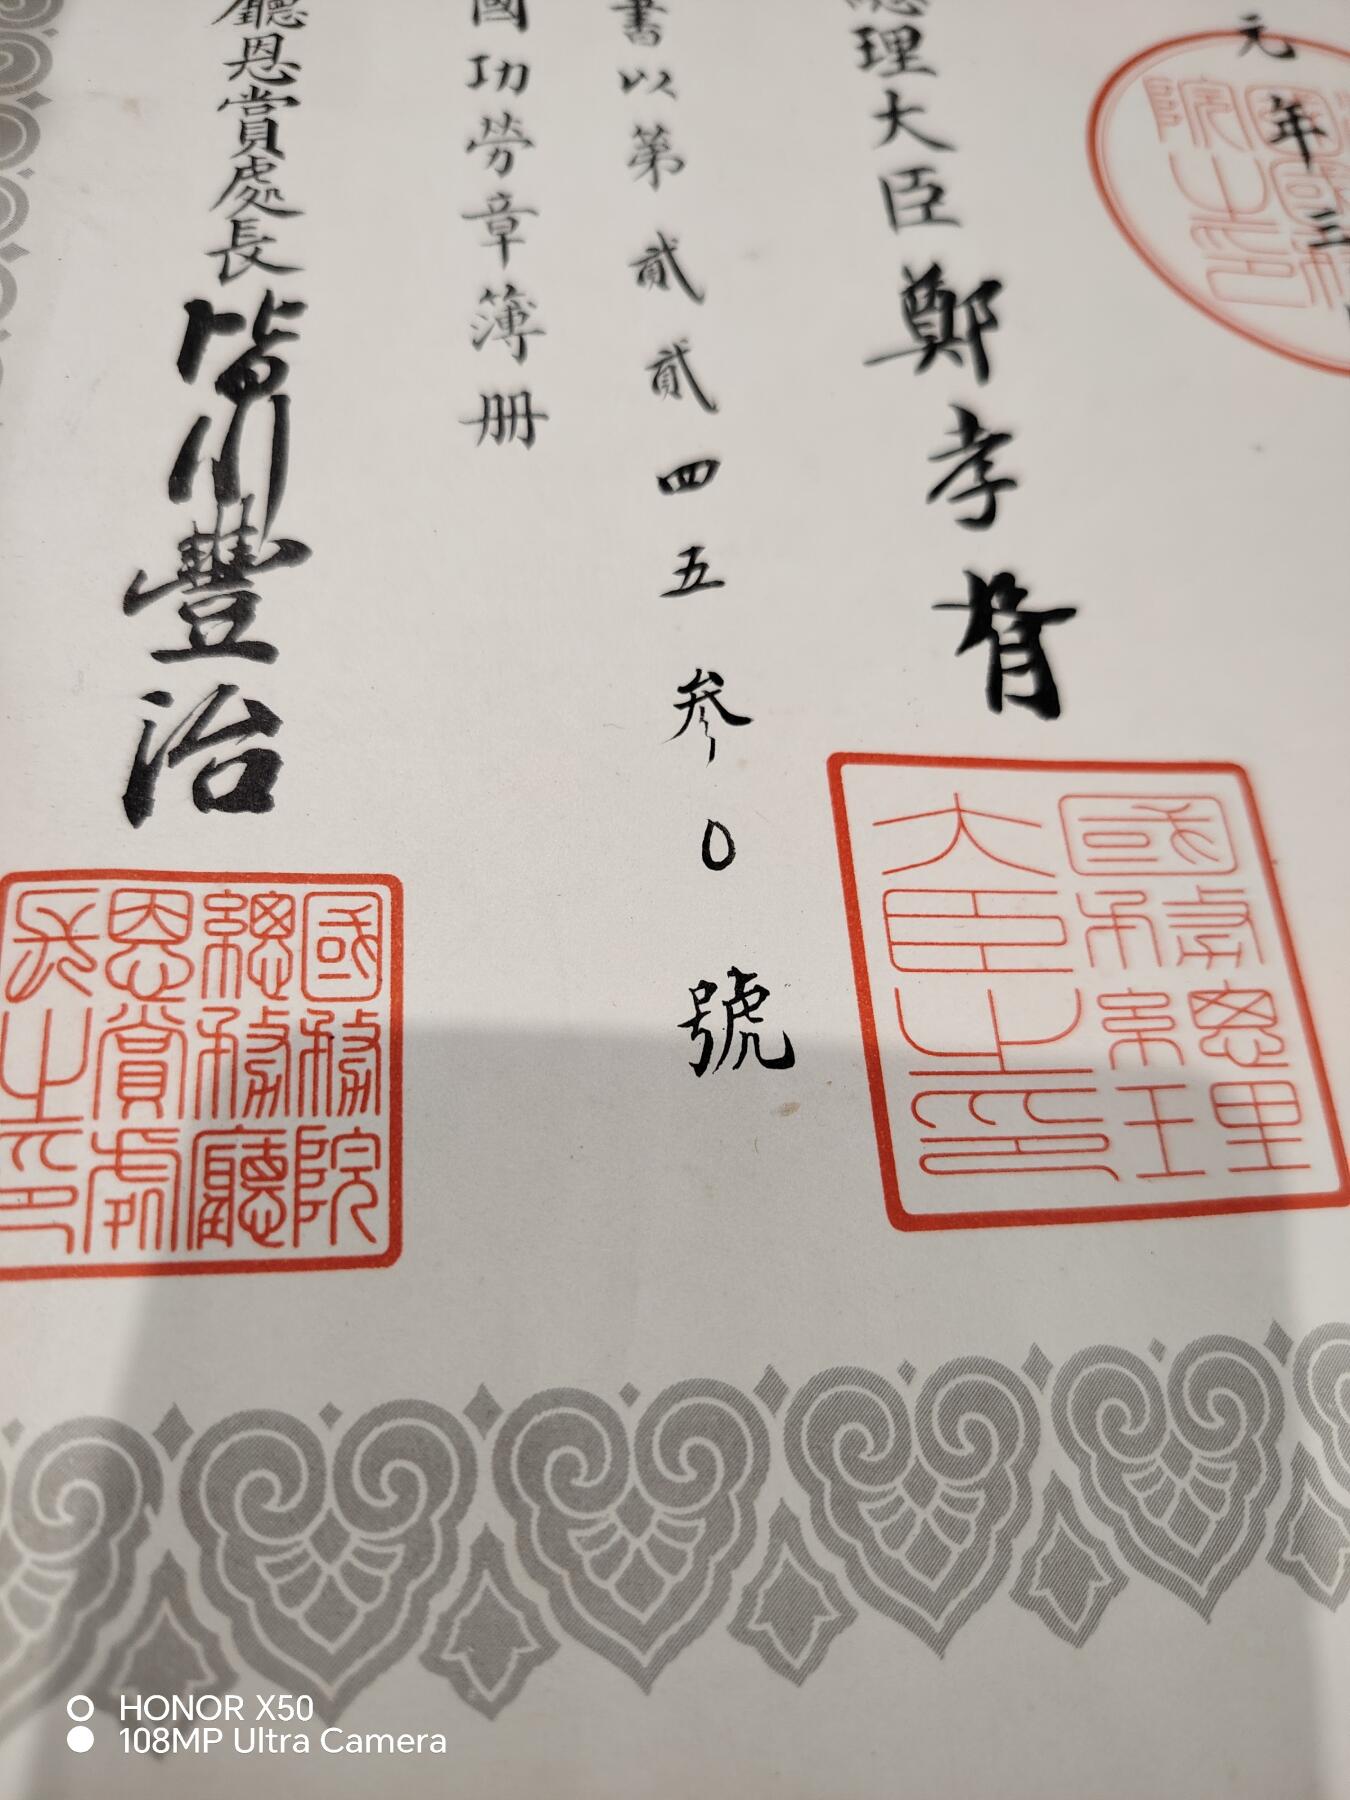 元年三
院之印
總理大臣鄭孝胥
國務總理
大臣之印
書以第貳貳四五參〇號
國功勞章簿册
廳恩賞處長皆川豐治
國務院
總務廳
恩賞處
長之印
HONOR X50
108MP Ultra Camera